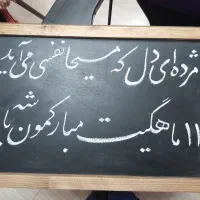 مژده‌ای دل که مسیحا نفسی می‌آید
۱۱ ماهگیت مبارکمون باشه